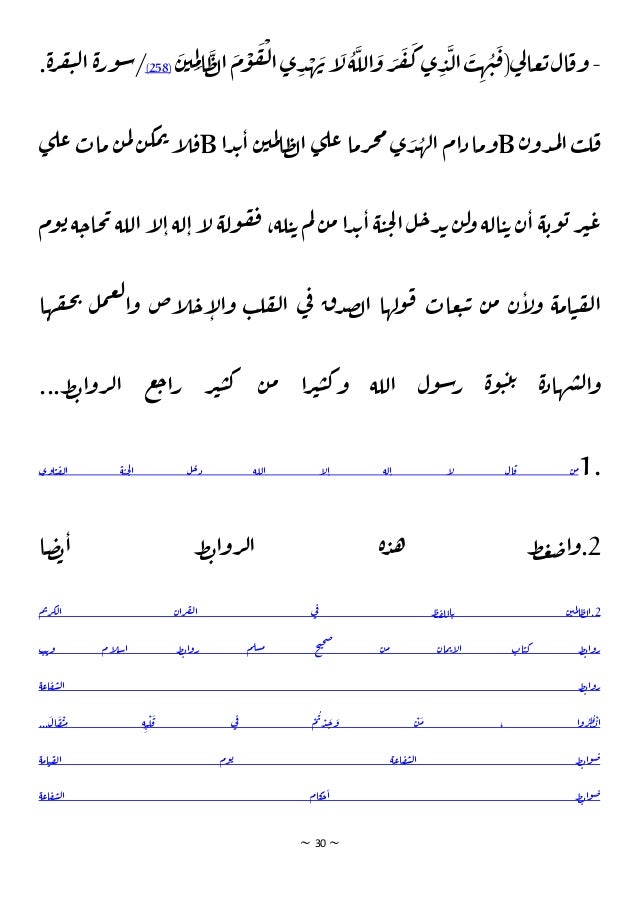 - وقال تعالي(فَبُهِتَ الَّذِي كَفَرَ وَاللَّهُ لَا يَهْدِي الْقَوْمَ الظَّالِمِينَ (258)/سورة البقرة.
قلت المدونB وما دام الهُدَي محرما علي الظالمين أبداB فلا يمكن لمن مات علي
غير توبة أن يناله ولن يدخل الجنة أبدا من لم ينله، فقولة لا إله إلا الله تحاجه يوم
القيامة ولأن من تبعات قولها الصدق في القلب والإخلاص والعمل بحقها
والشهادة بنبوة رسول الله وكثيرا من كثير راجع الروابط...
1. من قال لا اله الا الله دخل الجنة الفتاوي
2.واضغط هذه الروابط أيضا
2.الظالمين باللفظ في القران الكريم
روابط كتاب الايمان من صحيح مسلم روابط اسلام ويب
روابط الشفاعة
انْظُرُوا ، مَنْ وَجَدْتُمْ فِي قَلْبِهِ مِثْقَالَ...
ضوابط الشفاعة يوم القيامة
ضوابط أحكام الشفاعة
~ 30 ~